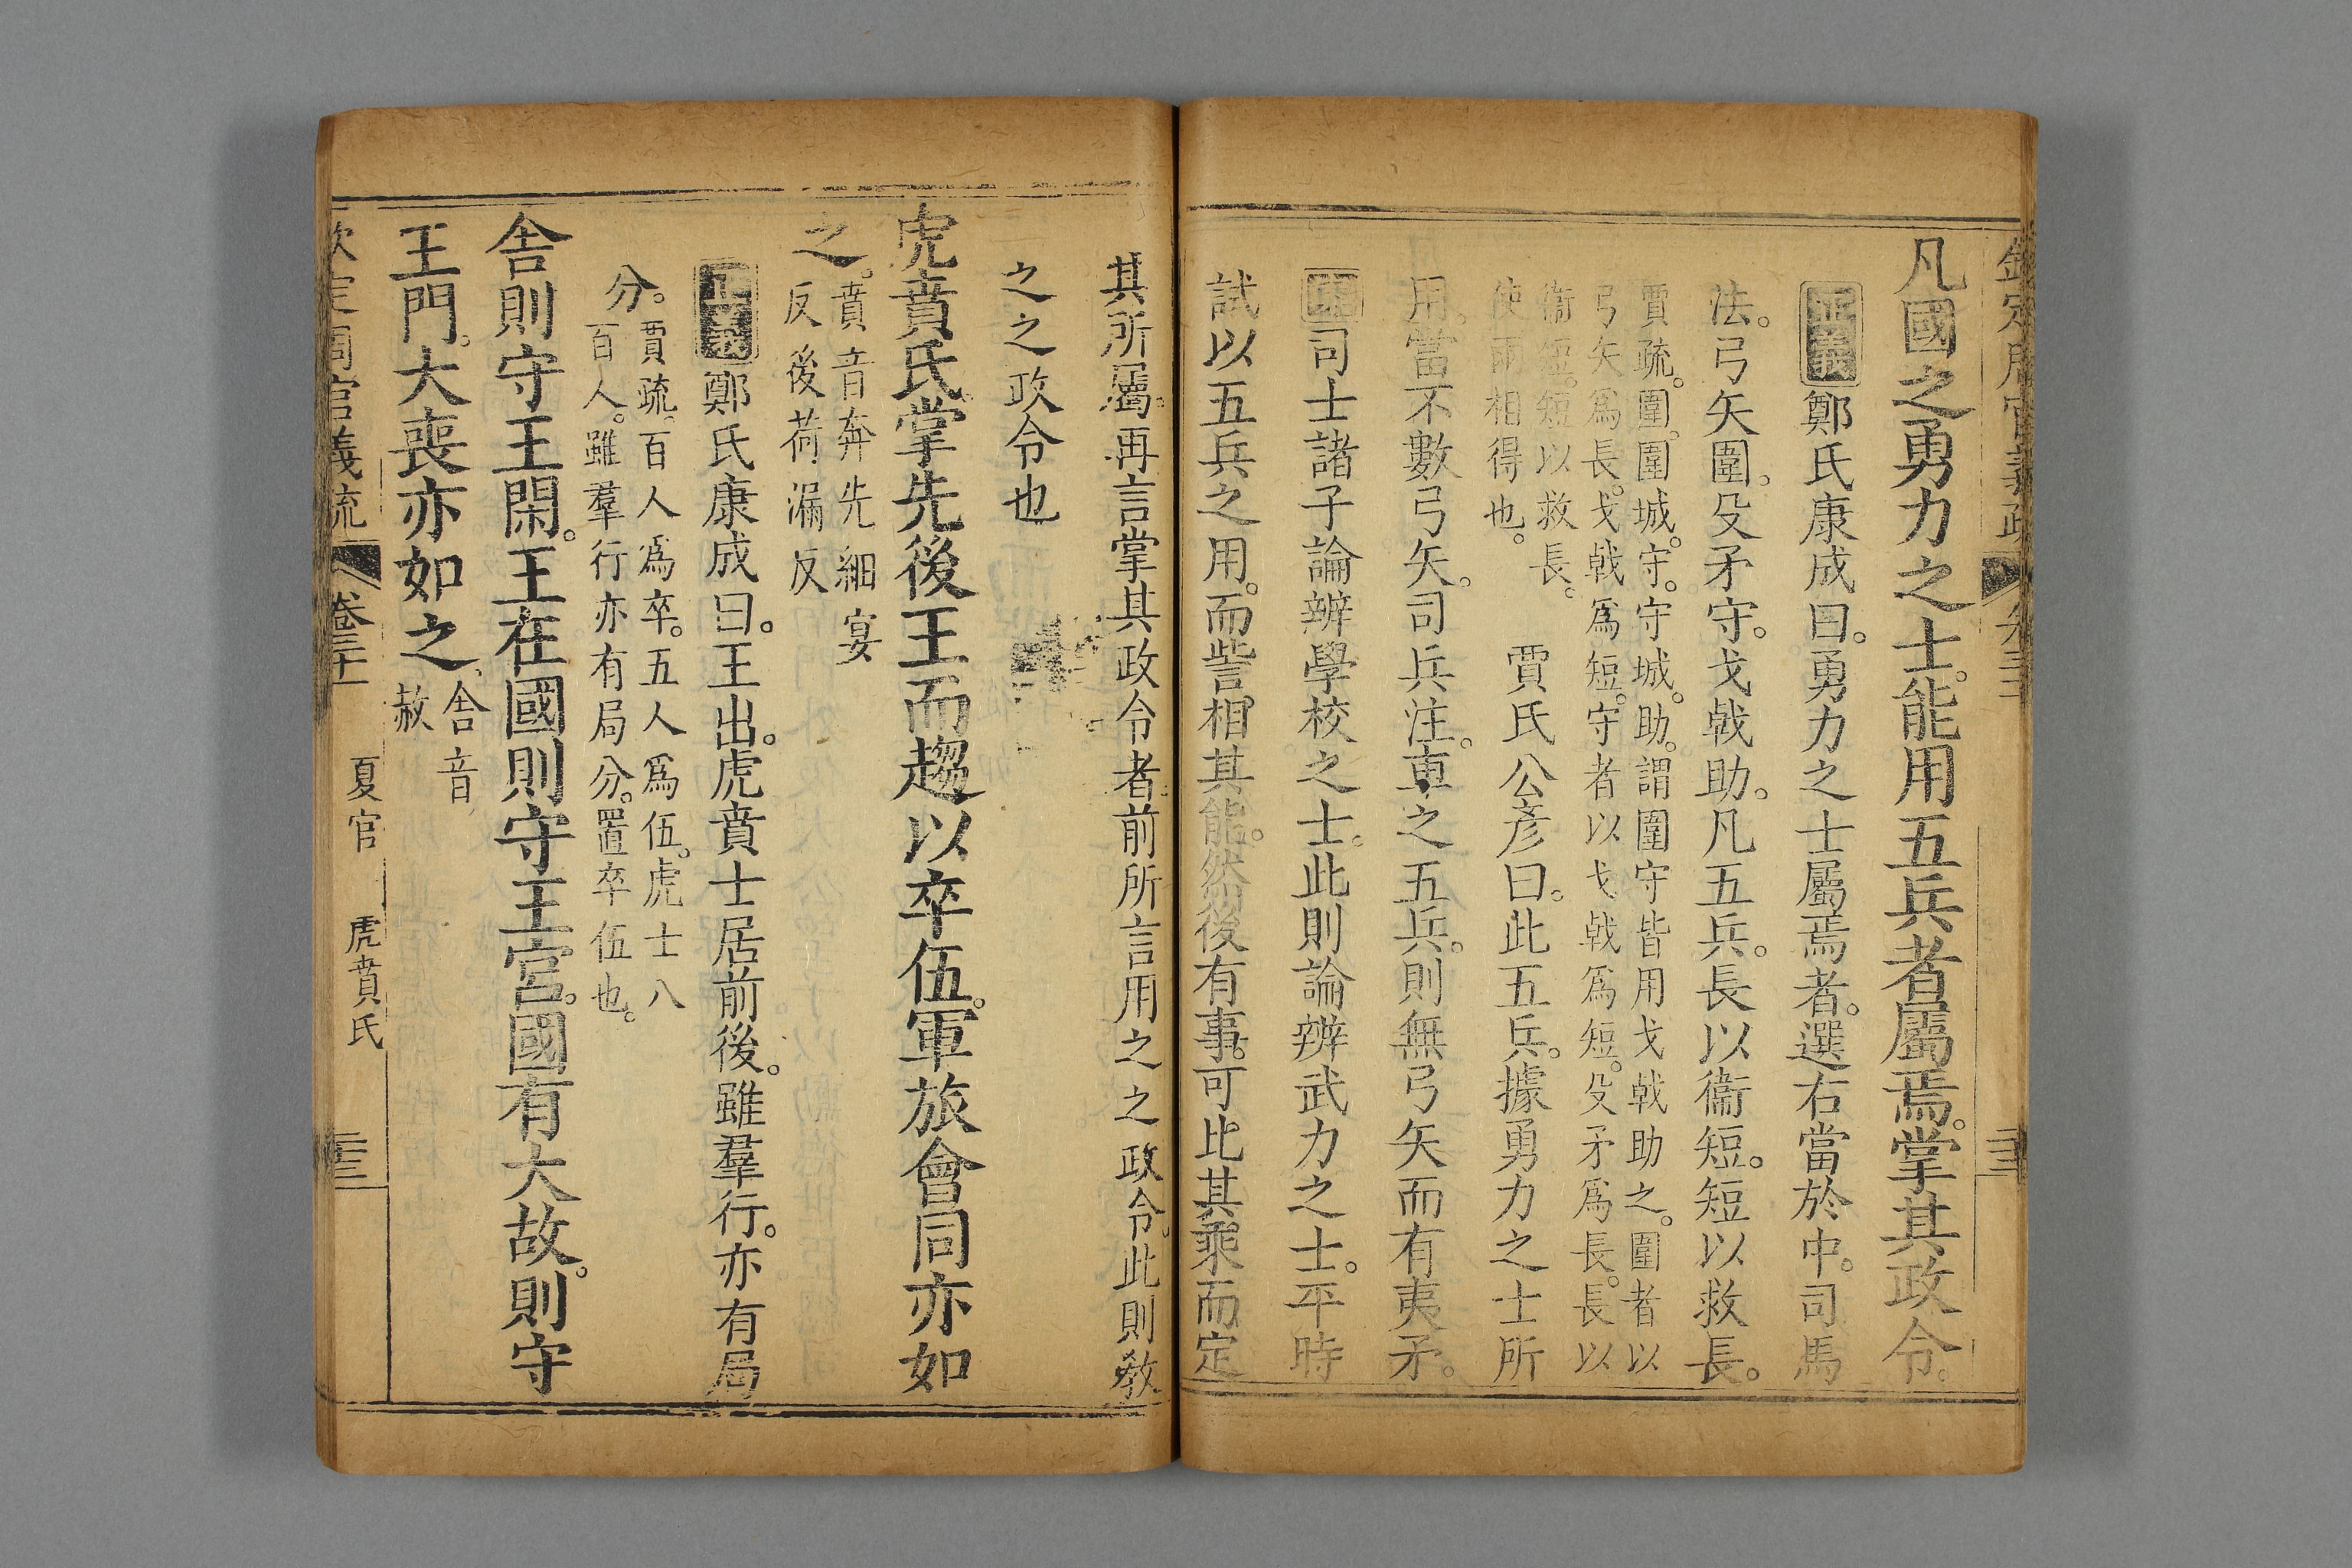 凡國之勇力之士。能用五兵者屬焉。掌其政令。
正義鄭氏康成曰。勇力之士屬焉者。選右當於中。司馬
法。弓矢圍。殳矛守。戈戟助。凡五兵。長以衞短。短以救長。
賈疏。圍。圍城。守。守城。助。謂圍守皆用戈戟助之。圍者以
弓矢爲長。戈戟爲短。守者以戈戟爲短。殳矛爲長。長以
衞短。短以救長。
使兩相得也。
賈氏公彥曰。此五兵。據勇力之士所
用。當不數弓矢。司兵注。車之五兵。則無弓矢而有夷矛。
司士諸子論辨學校之士。此則論辨武力之士。平時
試以五兵之用。而訾相其能。然後有事。可比其乘而定
其所屬。再言掌其政令者前所言用之之政令。此則教
之之政令也
虎賁氏。掌先後王而趨以卒伍。軍旅會同亦如
之。
賁音奔先細宴
反後荷漏反
正義鄭氏康成曰。王出。虎賁士居前後。雖羣行。亦有局
分。
賈疏。百人爲卒。五人爲伍。虎士八
百人。雖羣行亦有局分。置卒伍也。
舍則守王閑。王在國則守王宮。國有大故。則守
王門。大喪亦如之。
舍音
赦
欽定周官義疏
卷三十一
夏官 虎賁氏